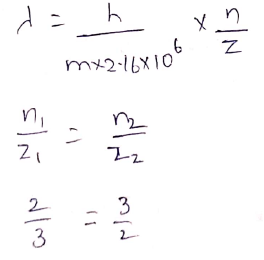 λ = h / m×2.16×10⁶ × n / Z
n₁ / Z₁ = n₂ / Z₂
2 / 3 = 3 / 2